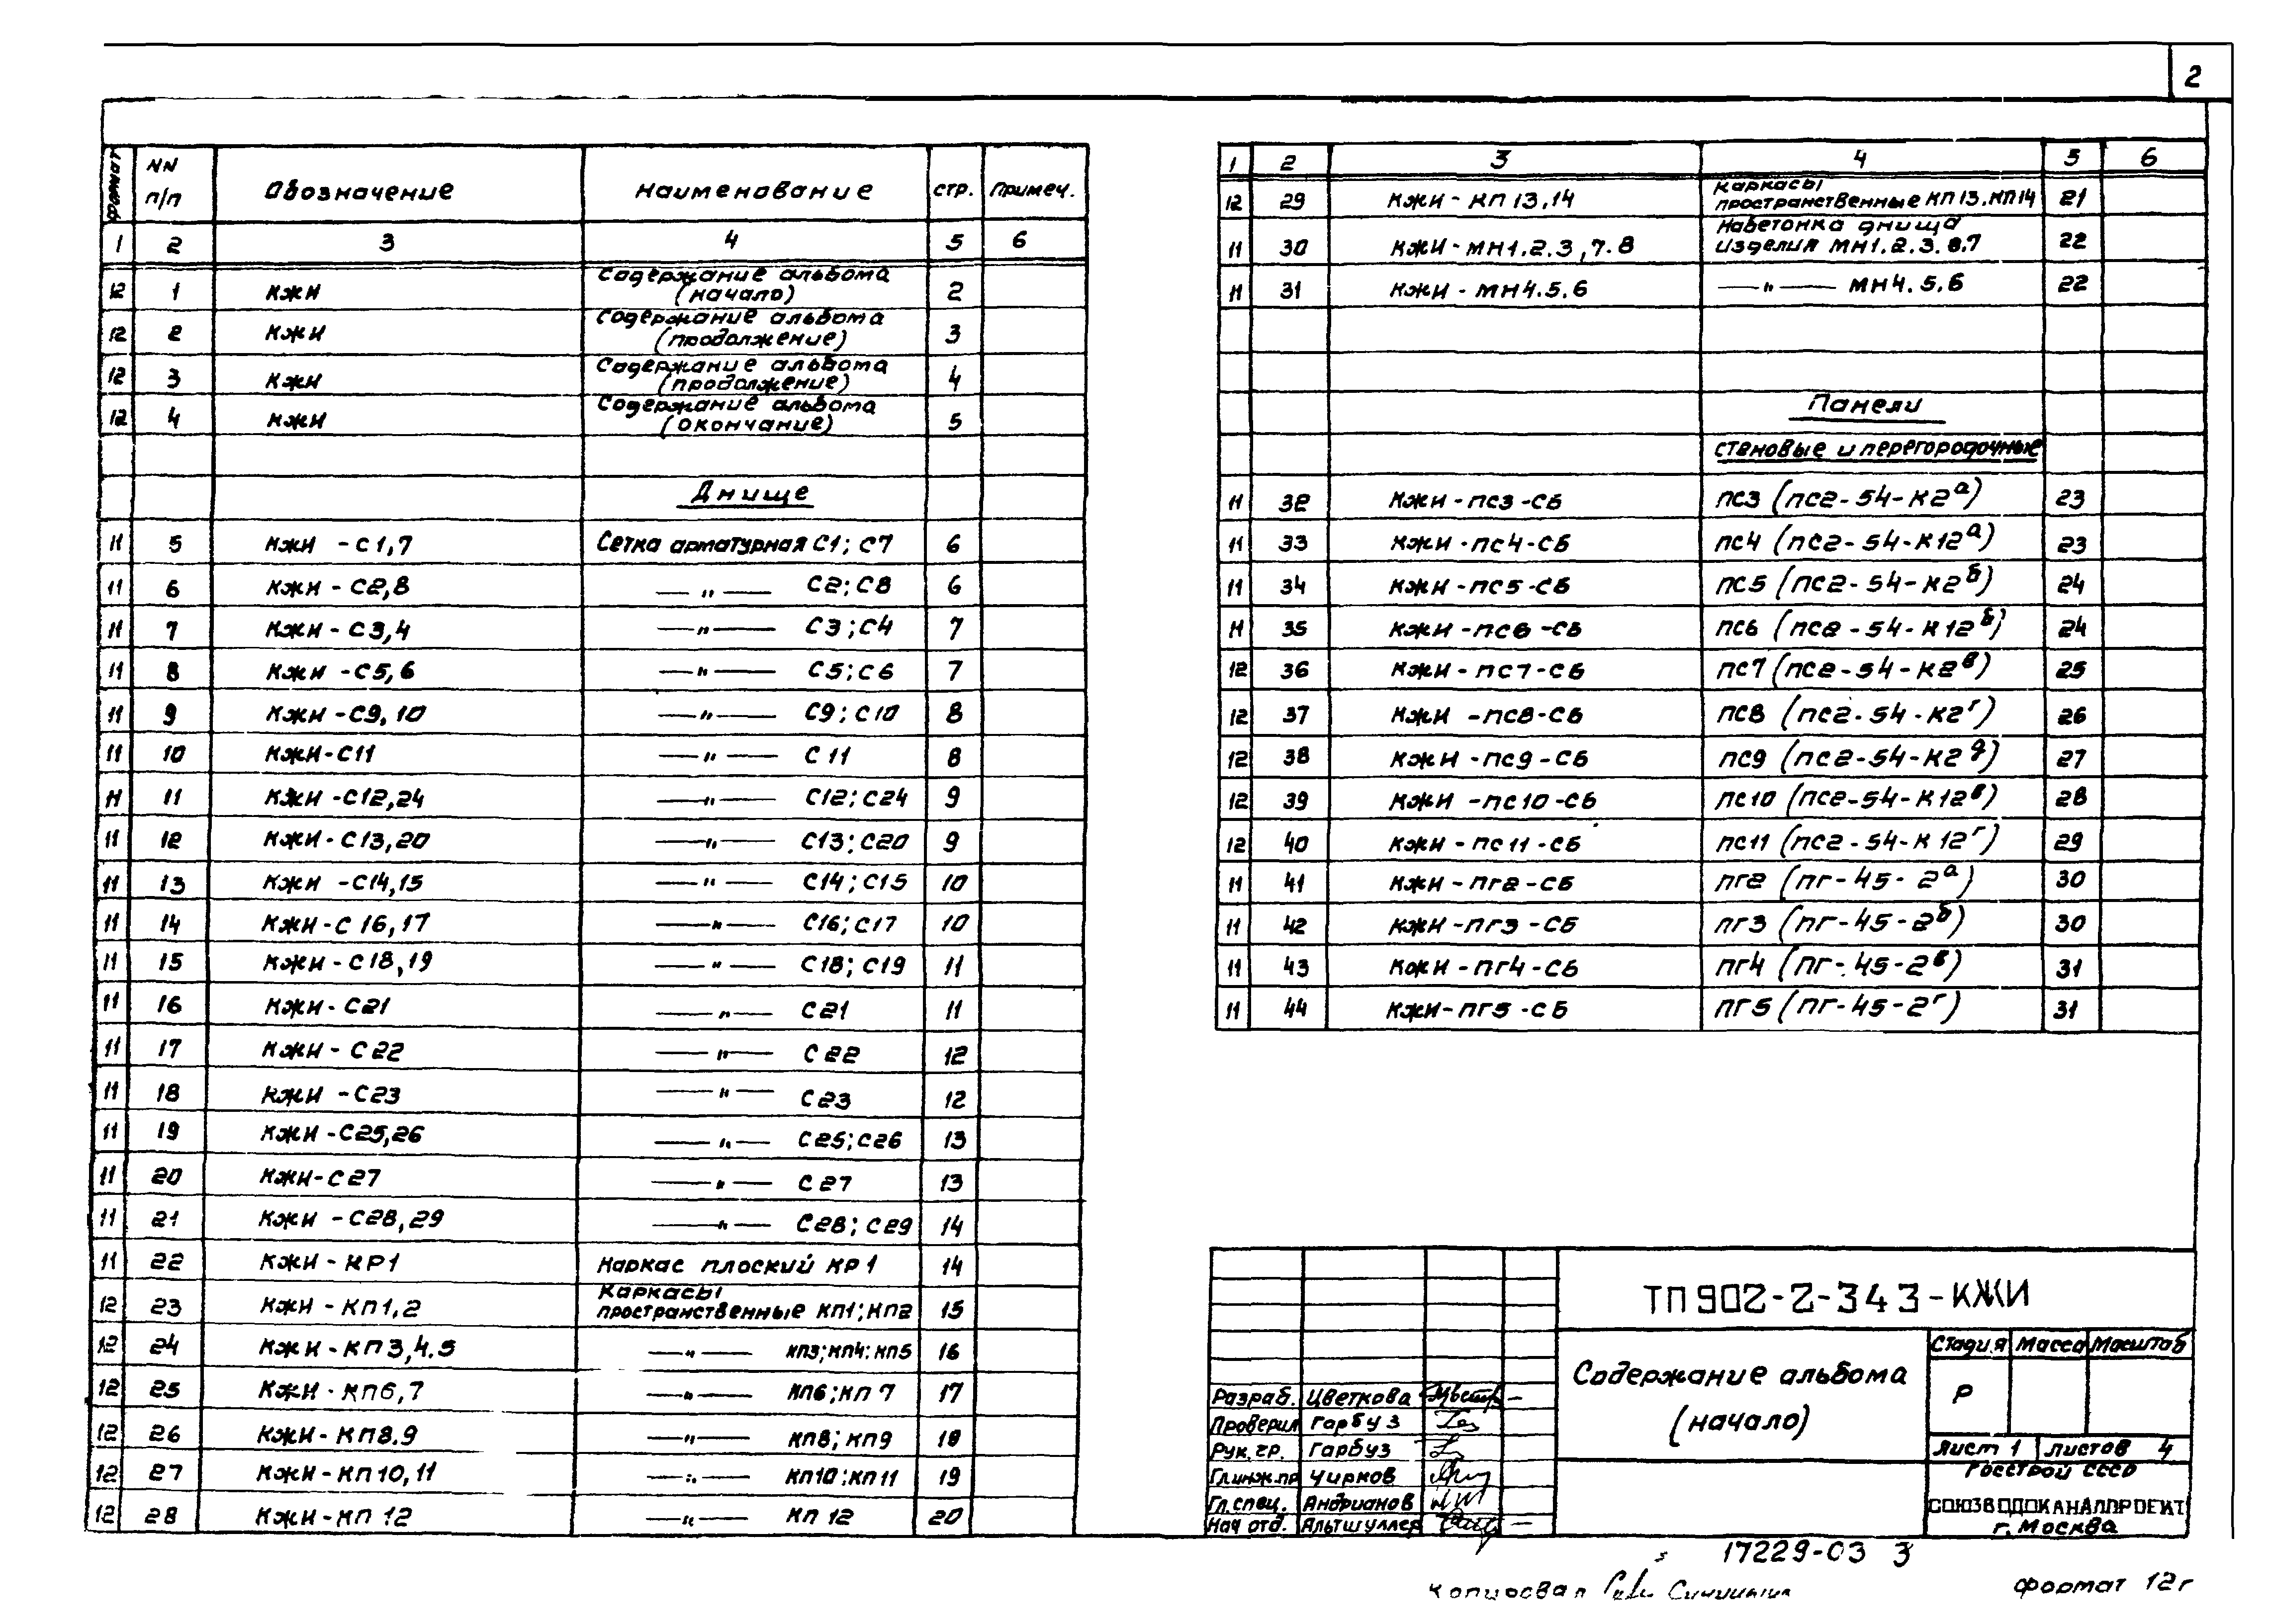 2
формат NN п/п Обозначение Наименование стр. Примеч.
1 2 3 4 5 6
12 1 КЖИ Содержание альбома (начало) 2
12 2 КЖИ Содержание альбома (продолжение) 3
12 3 КЖИ Содержание альбома (продолжение) 4
12 4 КЖИ Содержание альбома (окончание) 5
Днище
11 5 КЖИ - С1,7 Сетка арматурная С1; С7 6
11 6 КЖИ - С2,8 — " — С2; С8 6
11 7 КЖИ - С3,4 — " — С3; С4 7
11 8 КЖИ - С5,6 — " — С5; С6 7
11 9 КЖИ - С9,10 — " — С9; С10 8
11 10 КЖИ - С11 — " — С11 8
11 11 КЖИ - С12,24 — " — С12; С24 9
11 12 КЖИ - С13,20 — " — С13; С20 9
11 13 КЖИ - С14,15 — " — С14; С15 10
11 14 КЖИ - С16,17 — " — С16; С17 10
11 15 КЖИ - С18,19 — " — С18; С19 11
11 16 КЖИ - С21 — " — С21 11
11 17 КЖИ - С22 — " — С22 12
11 18 КЖИ - С23 — " — С23 12
11 19 КЖИ - С25,26 — " — С25; С26 13
11 20 КЖИ - С27 — " — С27 13
11 21 КЖИ - С28,29 — " — С28; С29 14
11 22 КЖИ - КР1 Каркас плоский КР1 14
12 23 КЖИ - КП1,2 Каркасы пространственные КП1; КП2 15
12 24 КЖИ - КП3,4.5 — " — КП3; КП4; КП5 16
12 25 КЖИ - КП6,7 — " — КП6; КП7 17
12 26 КЖИ - КП8.9 — " — КП8; КП9 18
12 27 КЖИ - КП10,11 — " — КП10; КП11 19
12 28 КЖИ - КП12 — " — КП12 20
1 2 3 4 5 6
12 29 КЖИ - КП13,14 Каркасы пространственные КП13, КП14 21
11 30 КЖИ - МН1.2.3,7.8 Набетонка днища изделия МН1.2.3.8.7 22
11 31 КЖИ - МН4.5.6 — " — МН4.5.6 22
Панели
стеновые и перегородочные
11 32 КЖИ - ПС3 - СБ ПС3 (ПС2-54-К2а) 23
11 33 КЖИ - ПС4 - СБ ПС4 (ПС2-54-К12а) 23
11 34 КЖИ - ПС5 - СБ ПС5 (ПС2-54-К2б) 24
11 35 КЖИ - ПС6 - СБ ПС6 (ПС2-54-К12б) 24
12 36 КЖИ - ПС7 - СБ ПС7 (ПС2-54-К2в) 25
12 37 КЖИ - ПС8 - СБ ПС8 (ПС2-54-К2г) 26
12 38 КЖИ - ПС9 - СБ ПС9 (ПС2-54-К2д) 27
12 39 КЖИ - ПС10 - СБ ПС10 (ПС2-54-К12в) 28
12 40 КЖИ - ПС11 - СБ ПС11 (ПС2-54-К12г) 29
11 41 КЖИ - ПГ2 - СБ ПГ2 (ПГ-45-2а) 30
11 42 КЖИ - ПГ3 - СБ ПГ3 (ПГ-45-2б) 30
11 43 КЖИ - ПГ4 - СБ ПГ4 (ПГ-45-2в) 31
11 44 КЖИ - ПГ5 - СБ ПГ5 (ПГ-45-2г) 31
ТП 902-2-343-КЖИ
Содержание альбома
(начало)
Стадия Масса Масштаб
Р
Лист 1 Листов 4
Госстрой СССР
СОЮЗВОДОКАНАЛПРОЕКТ
г. Москва
Разраб. Цветкова
Проверил Гарбуз
Рук. гр. Гарбуз
Гл.инж.пр Чирков
Гл.спец. Андрианов
Нач отд. Альтшуллер
17229-03 3
Копировал
формат 12г